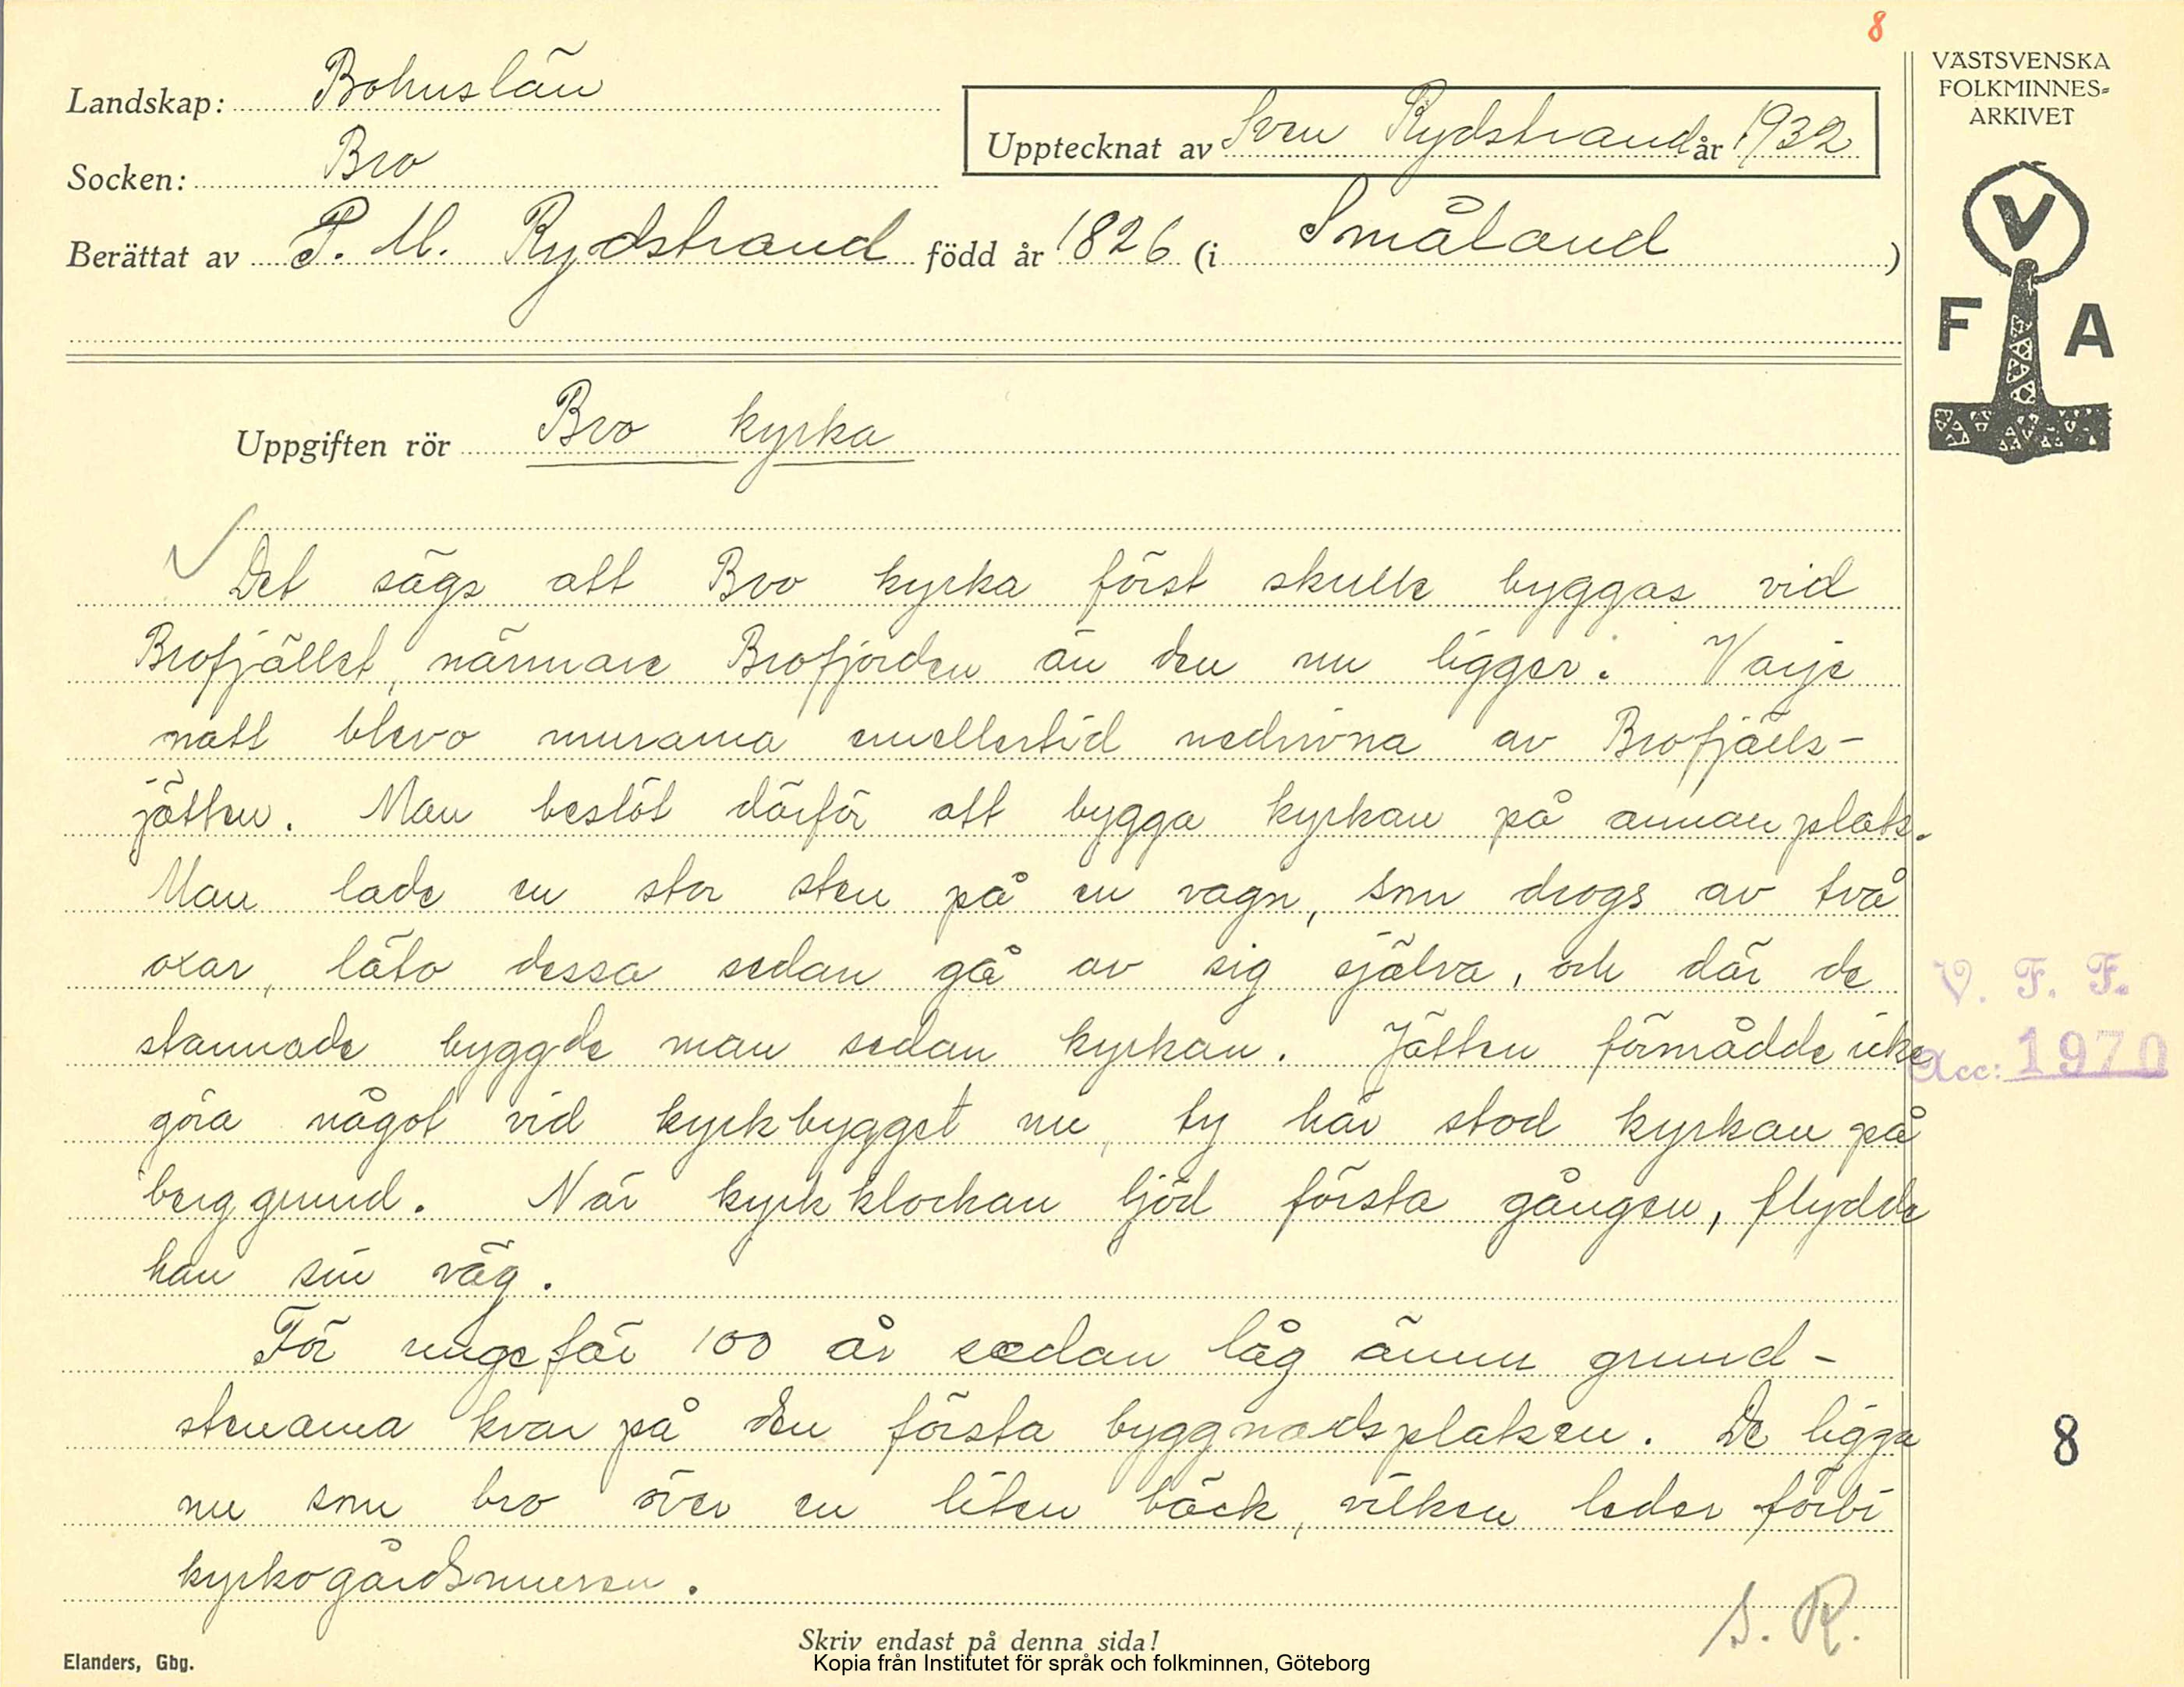 8
VÄSTSVENSKA
FOLKMINNES=
ARKIVET
Landskap: Bohuslän
Upptecknat av Sven Rydstrand år 1932
Socken: Bro
Berättat av P. M. Rydstrand född år 1826 (i Småland )
V
F A
Uppgiften rör Bro kyrka
Det säges att Bro kyrka först skulle byggas vid
Brofjället, närmare Brofjorden än den nu ligger. Varje
natt blevo murarna emellertid nedrivna av Brofjälls-
jätten. Man beslöt därför att bygga kyrkan på annan plats.
Man lade en stor sten på en vagn, som drogs av två
oxar, läto dessa sedan gå av sig själva, och där de
stannade byggde man sedan kyrkan. Jätten förmådde icke
göra något vid kyrkbygget nu, ty här stod kyrkan på
berggrund. När kyrkklockan ljöd första gången, flydde
han sin väg.
För ungefär 100 år sedan låg ännu grund-
stenarna kvar på den första byggnadsplatsen. De ligga
nu som bro över en liten bäck, vilken leder förbi
kyrkogårdsmuren.
S. R.
V. F. F.
Acc: 1970
8
Skriv endast på denna sida!
Elanders, Gbg.
Kopia från Institutet för språk och folkminnen, Göteborg